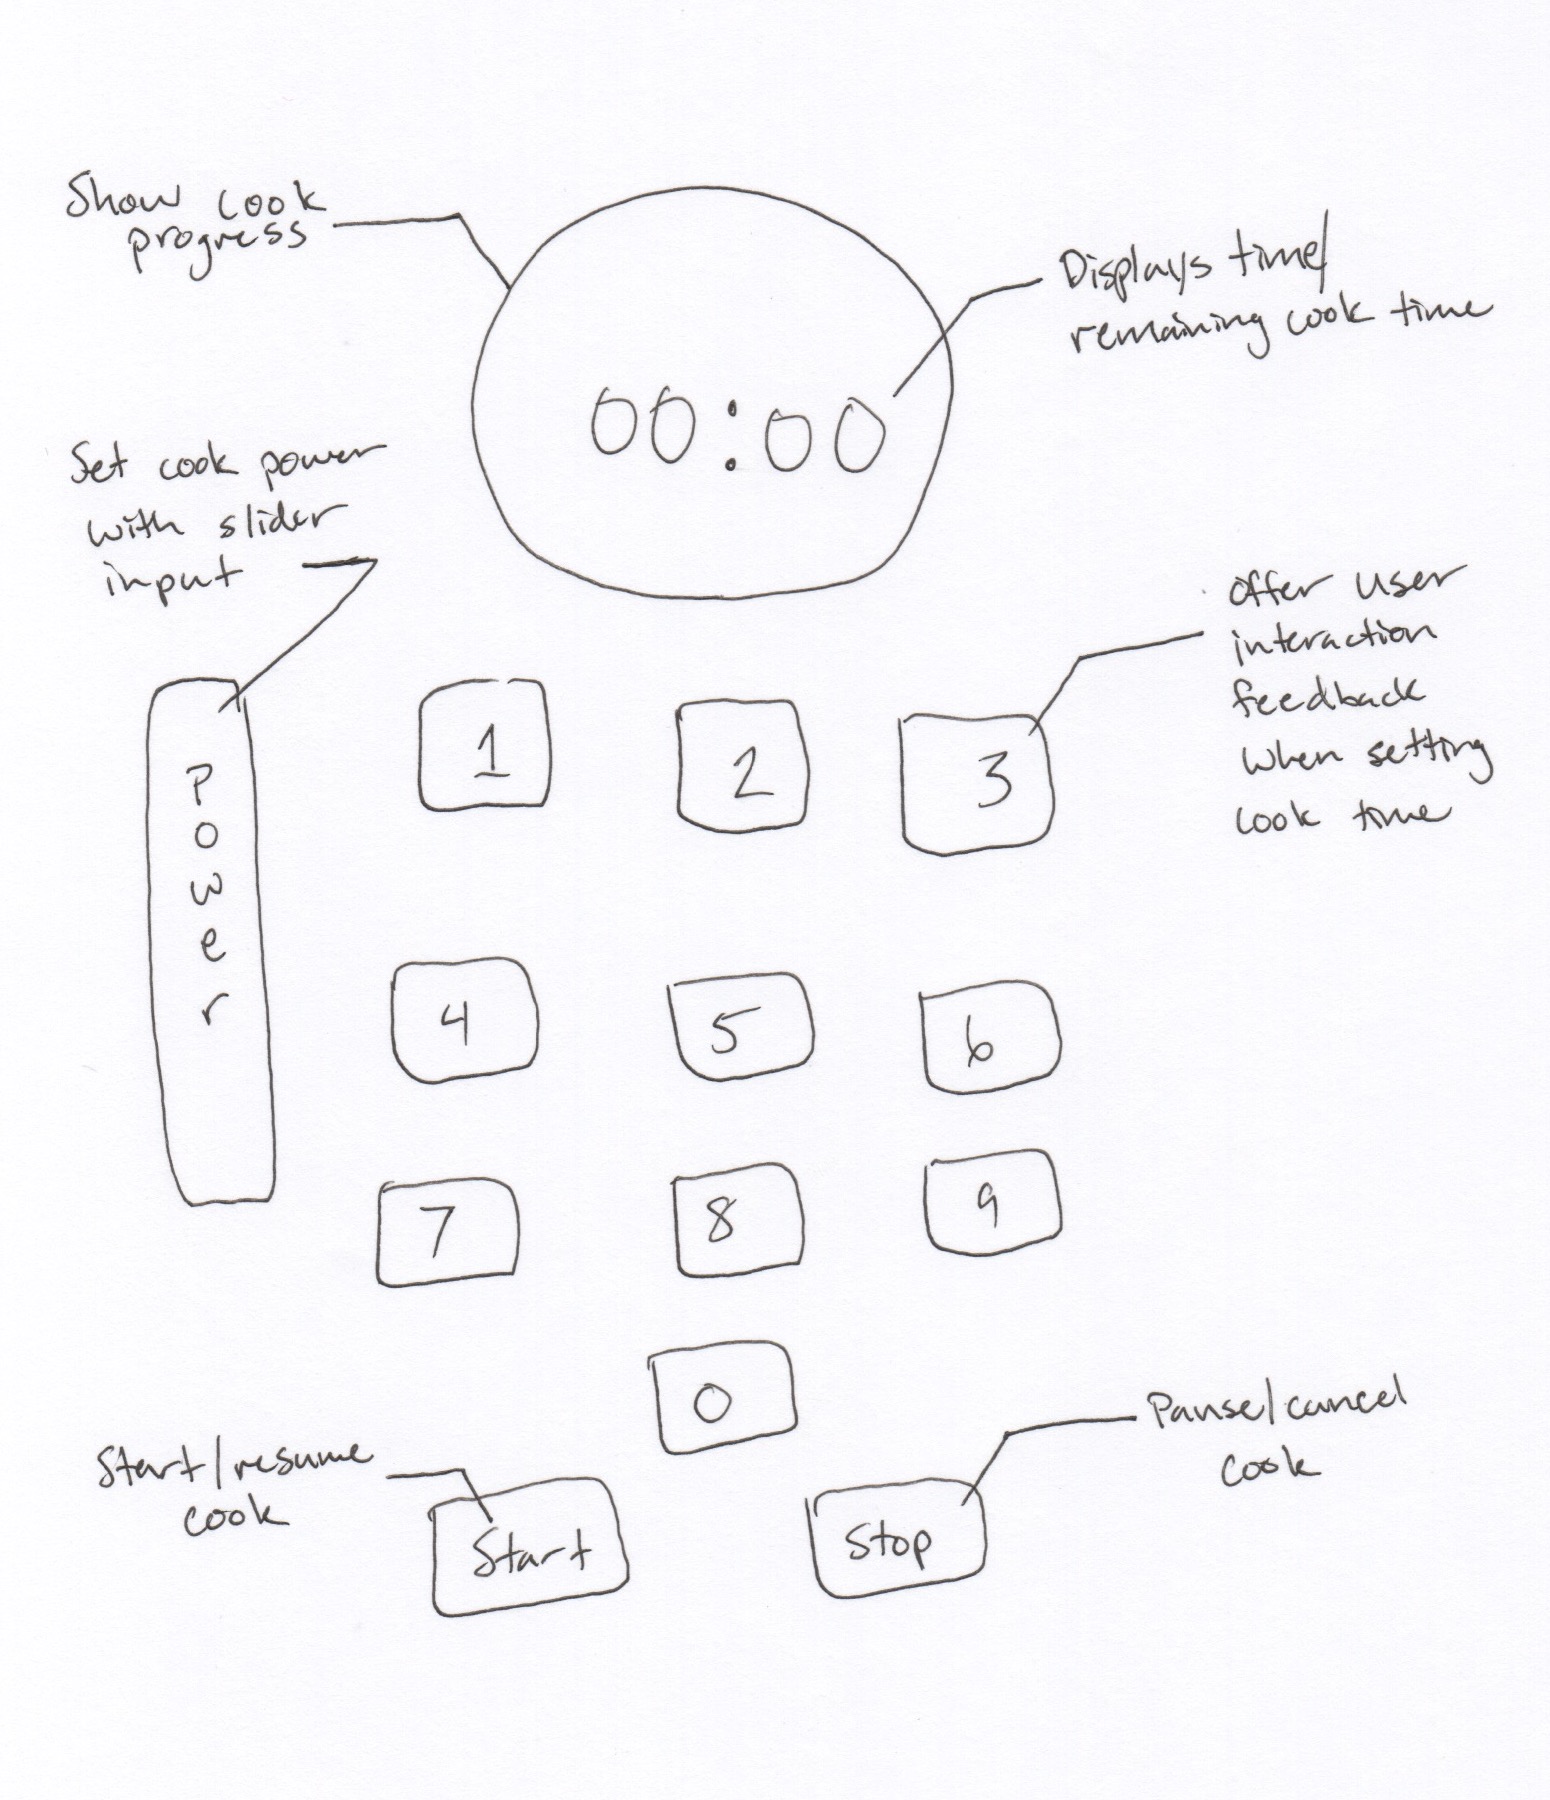 Show cook
progress
Displays time/
remaining cook time
00:00
Set cook power
with slider
input
offer user
interaction
feedback
when setting
cook time
Power
1
2
3
4
5
6
7
8
9
0
Start/resume
cook
Pause/cancel
cook
Start
Stop